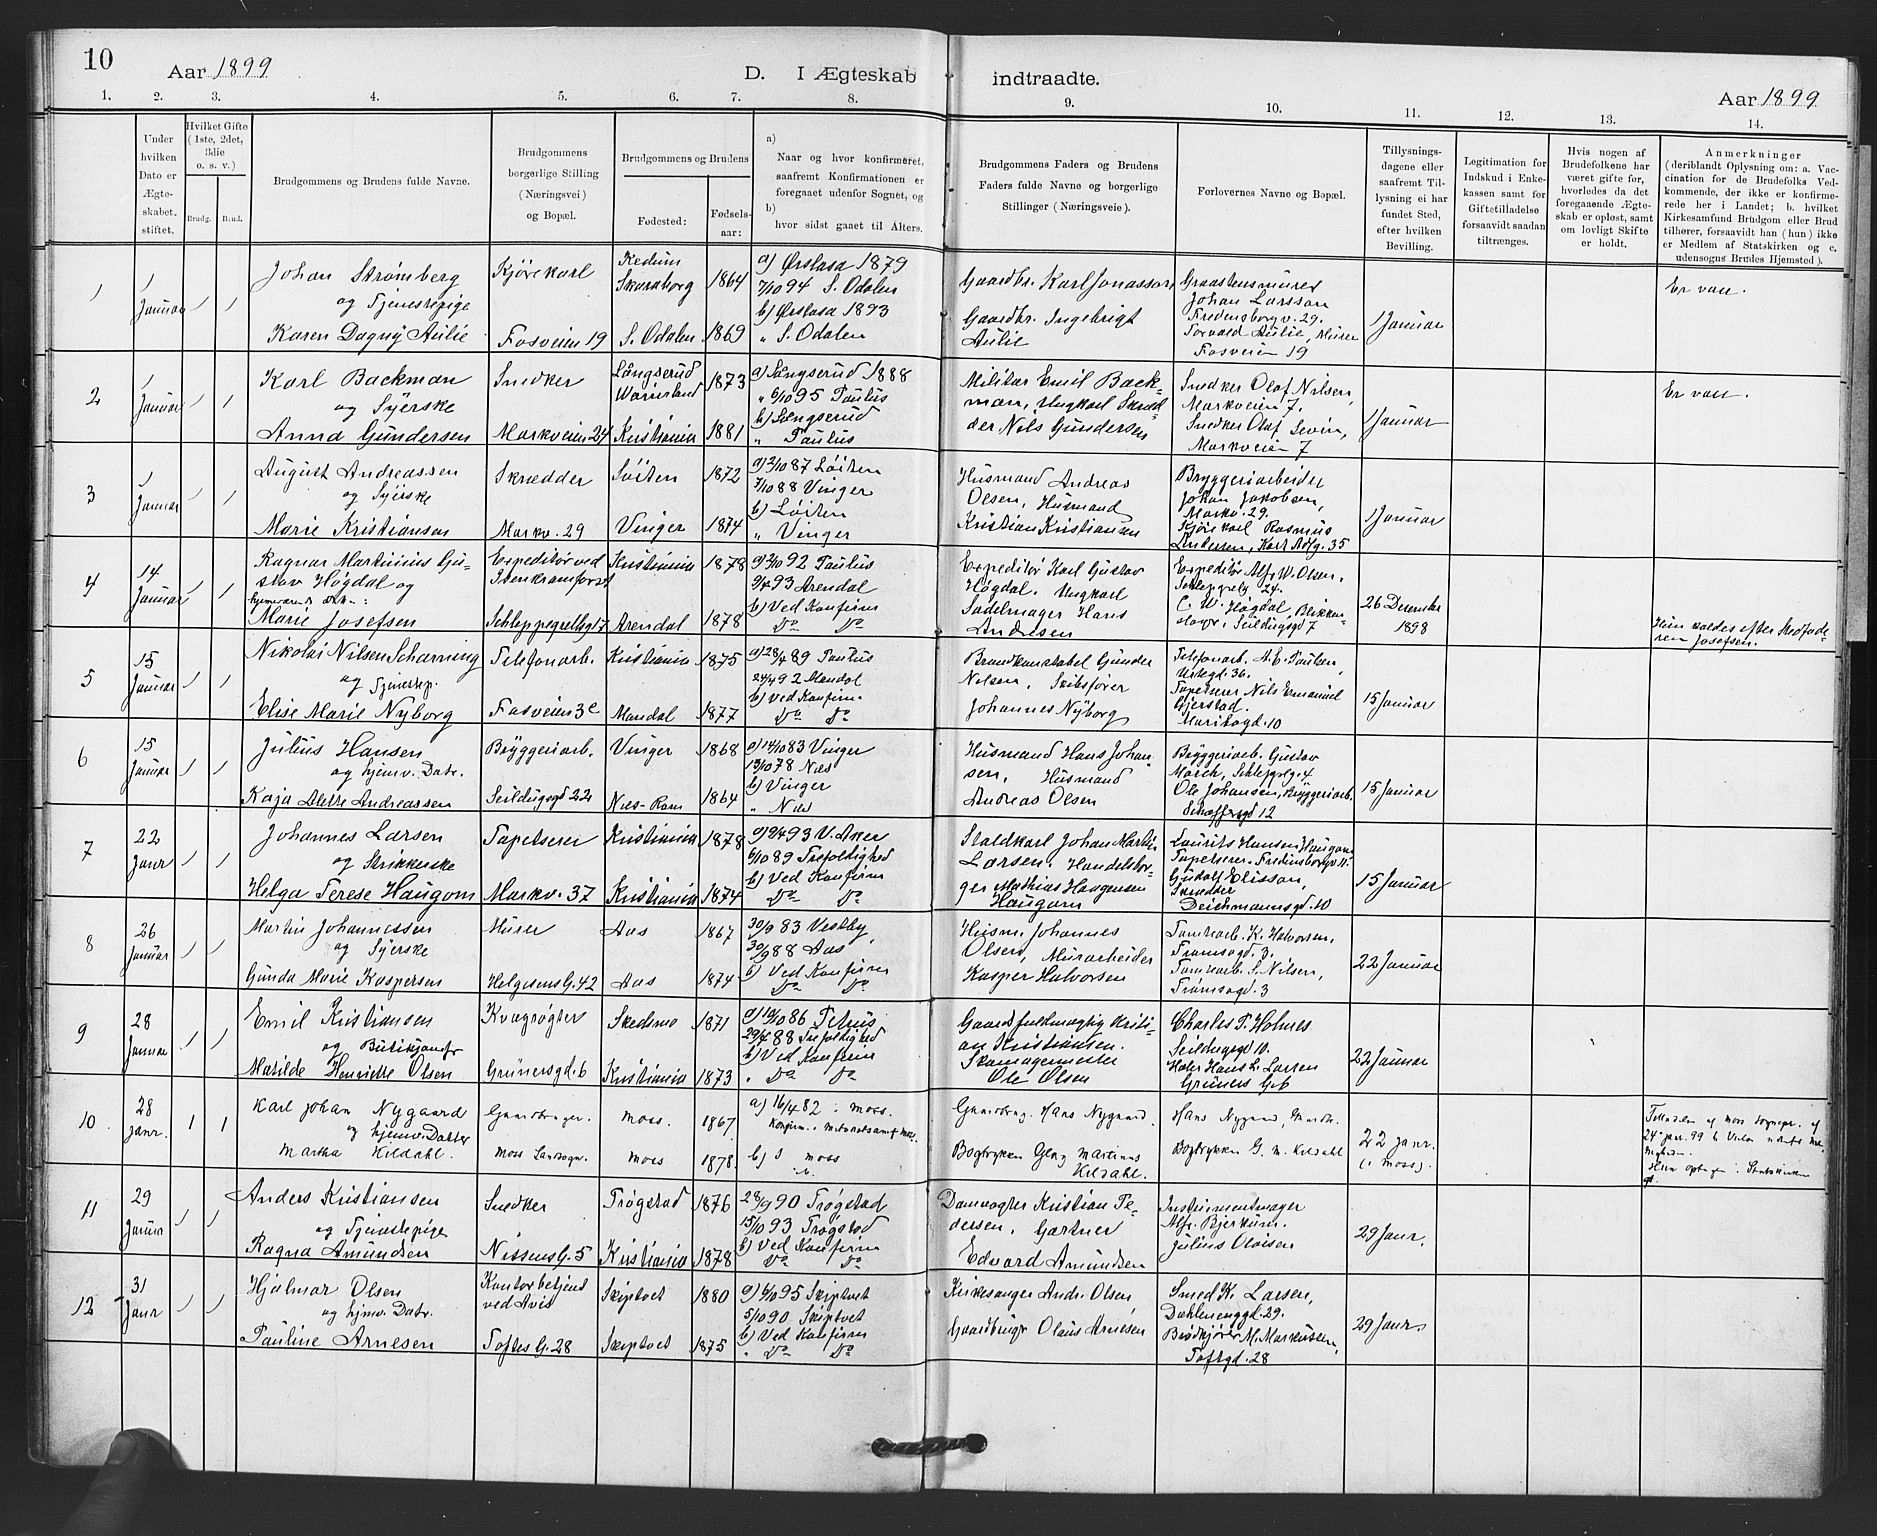 10
Aar 1899
D. I Ægteskab indtraadte.
Aar 1899
1. 2. 3. 4. 5. 6. 7. 8. 9. 10. 11. 12. 13. 14.
Under hvilken Dato er Ægteskabet stiftet.
Hvilket Gifte (1ste, 2det, 3die o. s. v.)
Brudg. Brud.
Brudgommens og Brudens fulde Navne.
Brudgommens borgerlige Stilling (Næringsvei) og Bopæl.
Brudgommens og Brudens
Fødested: Fødselsaar:
a) Naar og hvor konfirmeret, saafremt Konfirmationen er foregaaet udenfor Sognet, og
b) hvor sidst gaaet til Alters.
Brudgommens Faders og Brudens Faders fulde Navne og borgerlige Stillinger (Næringsveie).
Forlovernes Navne og Bopæl.
Tillysningsdagene eller saafremt Tillysning ei har fundet Sted, efter hvilken Bevilling.
Legitimation for Indskud i Enkekassen samt for Giftetilladelse forsaavidt saadan tiltrænges.
Hvis nogen af Brudefolkene har været gifte før, hvorledes da det foregaaende Ægteskab er opløst, samt om lovligt Skifte er holdt.
Anmerkninger (deriblandt Oplysning om: a. Vaccination for de Brudefolks Vedkommende, der ikke er konfirmerede her i Landet; b. hvilket Kirkesamfund Brudgom eller Brud tilhører, forsaavidt han (hun) ikke er Medlem af Statskirken og c. udensogns Brudes Hjemsted).
1
1 Januar
1 1
Johan Strømberg
og Tjenestepige
Karen Dagny Aulie
Kjørekarl
Fosveien 19
Kedum Skaraborg 1864
S. Odalen 1869
a) Örslosa 1879
7/10 94 S. Odalen
b) Örslosa 1893
" S. Odalen
Gaardbr. Karl Jonasson
Gaardbr. Ingebrigt
Aulie
Graastensmurer
Johan Larsson
Fredensborgv. 29.
Torvald Aulie, Murer
Fosveien 19
1 Januar
Er vacc.
2
1 Januar
1 1
Karl Backman
og Syerske
Anna Gundersen
Snedker
Markveien 24
Långserud Wärmland 1873
Kristiania 1881
a) Långserud 1888
" 6/10 95 Paulus
b) Långserud
" Paulus
Militær Emil Backman, Ungkarl Snedker Nils Gundersen
Snedker Olaf Nilsen,
Markveien 7.
Snedker Olaf Sevin,
Markveien 7
1 Januar
Er vacc.
3
1 Januar
1 1
August Andreassen
og Syerske
Marie Kristiansen
Skrædder
Markv. 29
Löiten 1872
Vinger 1874
a) 2/10 87 Löiten
7/10 88 Vinger
b) Löiten
" Vinger
Husmand Andreas
Olsen, Husmand
Kristian Kristiansen
Bryggeriarbeider
Johan Jakobsen,
Markv. 29.
Kjørekarl Rasmus
Andersen, Karl Adfg. 35
1 Januar
4
14 Januar
1 1
Ragnar Martinius Gustav Høgdal og
Marie Josefsen
Expeditör ved
Stenkramforr.
Schleppegrellsg 17
Kristiania 1878
Arendal 1878
a) 2/10 92 Paulus
9/4 93 Arendal
b) Ved Konfirm
Do Do
Expeditör Karl Gustav
Høgdal. Ungkarl
Sadelmager Hans
Andresen
Expeditör Alfr. W. Olsen,
Schleppelg 24.
C. W. Høgdal Blikkenslager, Seildugsgd 7
26 December
1898
Hun kaldes efter Stedfaderen Josefsen.
5
15 Januar
1 1
Nikolai Nilsen Scharning
og Tjenestep.
Elise Marie Nyborg
Telefonarb.
Fosveien 3c
Kristiania 1875
Mandal 1877
a) 28/4 89 Paulus
24/4 92 Mandal
b) Ved Konfirm
Do Do
Brandkonstabel Gunder
Nilsen, Skibsfører
Johannes Nyborg
Telefonarb. A. E. Paulsen,
Urtegd. 36.
Tapetserer Nils Emanuel
Gjerstad.
Maribogd. 10
15 Januar
6
15 Januar
1 1
Julius Hansen
og hjemv. Datr.
Kaja Alette Andreassen
Bryggeriarb.
Seildugsgd 22
Vinger 1868
Næs-Rom 1864
a) 14/10 83 Vinger
13/10 78 Næs
b) Vinger
" Næs
Husmand Hans Johansen, Husmand
Andreas Olsen
Bryggeriarb. Gustav
March, Schleppelg. 4
Ole Johansen, Bryggeriarb.
Schæffersgd 12
15 Januar
7
22 Janr
1 1
Johannes Larsen
og Strikkerske
Helga Terese Haugom
Tapetserer
Markv. 37
Kristiania 1878
Kristiania 1874
a) 9/4 93 V. Aker
6/10 89 Trefoldighed
b) Ved Konfirm
Do Do
Staldkarl Johan Martin
Larsen. Handelsborger Mathias Haagensen
Haugom
Laurits Hansen Haugom
Tapetserer Fredensborgv 11
Gudolf Elisson,
Skrædder
Deichmannsgd. 10
15 Januar
8
26 Januar
1 1
Martin Johannessen
og Syerske
Gunda Marie Kaspersen
Murer
Helgesens G. 42
Aas 1867
Aas 1874
30/9 83 Vestby,
30/9 88 Aas
b) Ved Konfirm
Do Do
Husm. Johannes
Olsen, Murarbeider
Kasper Halvorsen
Tomtearb. K. Halvorsen,
Tromsøgd. 3.
Tomtearb. S. Nilsen,
Tromsøgd. 3
22 Januar
9
28 Januar
1 1
Emil Kristiansen
og Butikjomfr
Matilde Henriette Olsen
Kvægrøgter
Grünersgd. 6
Skedsmo 1871
Kristiania 1873
a) 10/10 86 Petrus
88 Trefoldighed
b) Ved Konfirm
" Do Do
Gaardsfuldmægtig Kristian Kristiansen.
Skomagermester
Ole Olsen
Charles T. Holmes
Seildugsgd 10.
Maler Hans L. Larsen
Grüners G. 6
22 Januar
10
28 Janr.
1 1
Karl Johan Nygaard
og hjemv. Datter
Martha Kildahl.
Gaardbruger.
Moss Landsogn.
Moss 1867
Moss 1878
a) 16/4 82 i Moss.
b) i Moss
Gaardbrug. Hans Nygaard
Bogtrykker Georg Martinus
Kildahl.
Hans Nygaard,
Bogtrykker G. M. Kildahl
22 Janr.
(i Moss).
11
29 Januar
1 1
Anders Kristiansen
og Tjenestepige
Ragna Amundsen
Snedker
Nissens G. 5
Trøgstad 1876
Kristiania 1878
28/9 90 Trøgstad
15/10 93 Trøgstad
b) Ved Konfirm
Do Do
Damvogter Kristian Pedersen, Gartner
Edvard Amundsen
Instrumentmager
Alfr. Bjerkum.
Julius Olaisen
29 Janr.
12
31 Janr
1 1
Hjalmar Olsen
og hjemv. Datr.
Pauline Arnesen
Kontorbetjent
ved Avis
Toftes G. 28
Skiptvet 1880
Skiptvet 1875
a) 6/10 95 Skiptvet
5/10 90 Skiptvet
b) Ved Konfirm
" Do Do
Kirkesanger Andr. Olsen,
Gaardbruger Olaus Arnesen
Smed K. Larsen,
Dahlenenggd. 29.
Brødkjører M. Markussen,
Toftgd. 28
29 Janr.